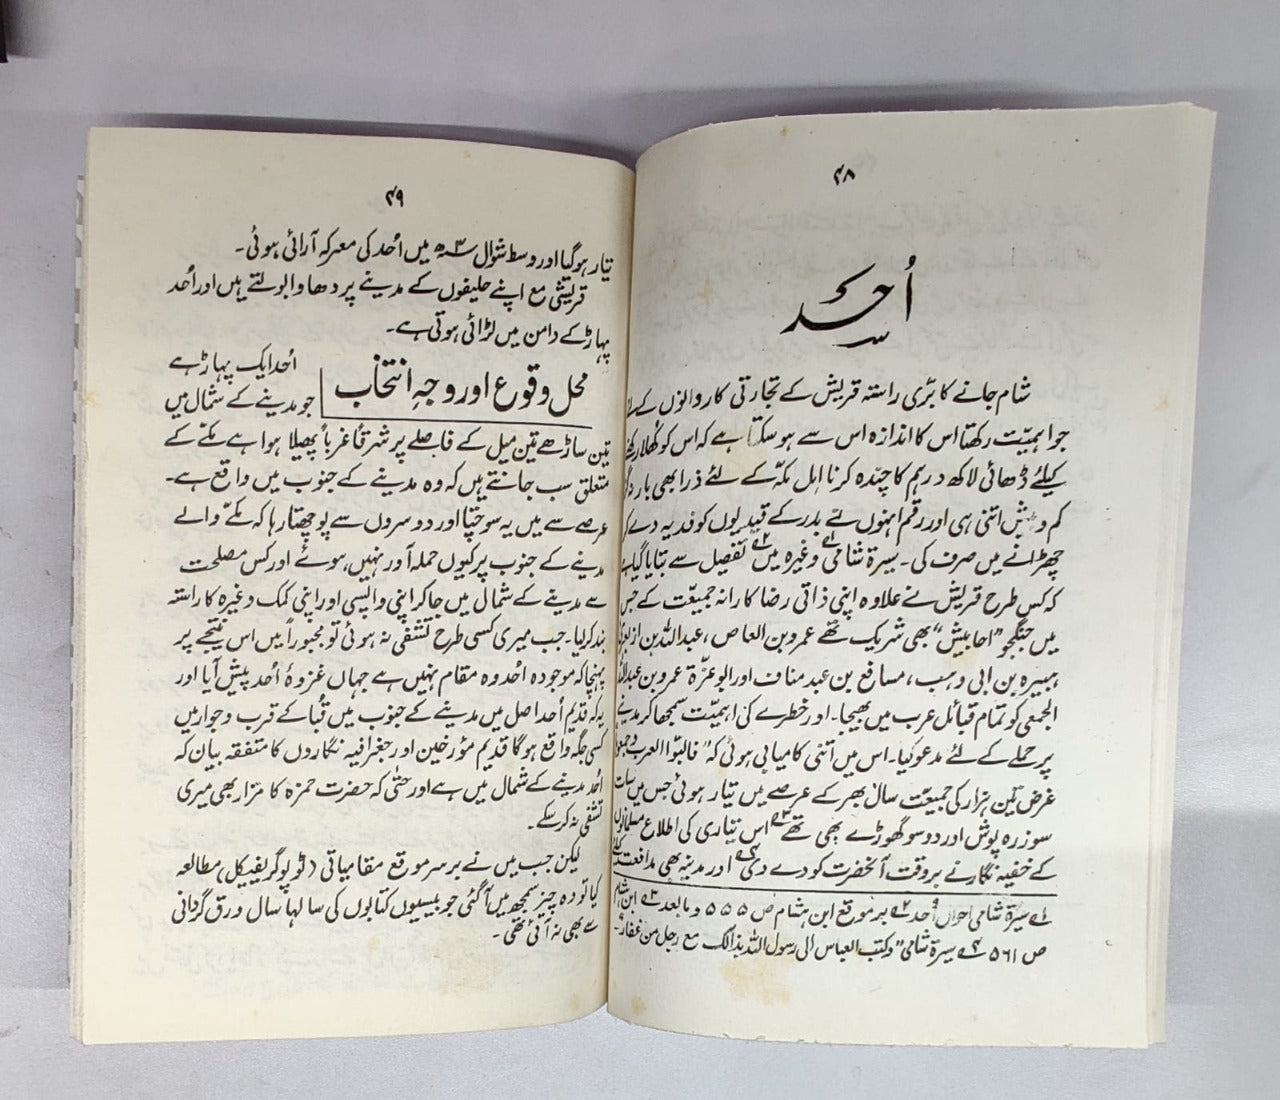 ۴۸
اُحد
شام جانے کا بڑی راستہ قریش کے تجارتی کاروانوں کے لئے
جو اہمیّت رکھتا اس کا اندازہ اس سے ہو سکتا ہے کہ اس کو کھلا رکھنے
کیلئے ڈھائی لاکھ درہم کا چندہ کرنا اہل مکہّ کے لئے ذرا بھی بار نہ
کم و بیش اتنی ہی اور رقم انہوں نے بدر کے قیدیوں کو فدیہ دے کر
چھڑانے میں صرف کی۔ سیرۃ شامی۱؎ وغیرہ میں۲؎ تفصیل سے بتایا گیا ہے
کہ کس طرح قریش نے علاوہ اپنی ذاتی رضا کارانہ جمیعّت کے جس
میں جنگجو ”احابیش“ بھی شریک تھے عمرو بن العاص، عبداللہ بن
ہبیرہ بن ابی وہب، مسافع بن عبد مناف اور ابو عزّۃ عمرو بن عبداللہ
الجمعی کو تمام قبائل عرب میں بھیجا۔ اور خطرے کی اہمیّت سمجھا کر مدینے
پر حملے کے لئے مدعو کیا۔ اس میں اتنی کامیابی ہوئی کہ ”فالبتوا العرب وجمعوا
غرض تین ہزار کی جمیعّت سال بھر کے عرصے میں تیار ہوئی جس میں سات
سو زرہ پوش اور دو سو گھوڑے بھی تھے۳؎ اس تیاری کی اطلاع مسلمانوں
کے خفیہ نگار نے بروقت آنحضرت کو دے دی۴؎ اور مدینہ بھی مدافعت کیلئے
۱؎ سیرۃ شامی احوال اُحد ۲؎ بر موقع ابن ہشام ص ۵۵۵ و مابعد ۳؎ ابن ہشام
ص ۵۶۱ ۴؎ سیرۃ شامی ”وکتب العباس الی رسول اللہ بذالک مع رجل من غفار“۔
۴۹
تیار ہو گیا اور وسط شوال ۳ھ میں اُحد کی معرکہ آرائی ہوئی۔
قریشی مع اپنے حلیفوں کے مدینے پر دھاوا بولتے ہیں اور اُحد
پہاڑ کے دامن میں لڑائی ہوتی ہے۔
محل وقوع اور وجہِ انتخاب
اُحد ایک پہاڑ ہے
جو مدینے کے شمال میں
تین ساڑھے تین میل کے فاصلے پر شرقاً غرباً پھیلا ہوا ہے مکّے کے
متعلق سب جانتے ہیں کہ وہ مدینے کے جنوب میں واقع ہے۔
عرصے سے میں یہ سوچتا اور دوسروں سے پوچھتا رہا کہ مکّے والے
مدینے کے جنوب پر کیوں حملہ آور نہیں ہوئے اور کس مصلحت
سے مدینے کے شمال میں جا کر اپنی واپسی اور اپنی کمک وغیرہ کا راستہ
بند کر لیا۔ جب میری کسی طرح تشفی نہ ہوئی تو مجبوراً میں اس نتیجے پر
پہنچا کہ موجودہ اُحد وہ مقام نہیں ہے جہاں غزوۂ اُحد پیش آیا اور
یہ کہ قدیم اُحد اصل میں مدینے کے جنوب میں قبا کے قرب وجوار میں
کسی جگہ واقع ہو گا قدیم مؤرخین اور جغرافیہ نگاروں کا متفقہ بیان کہ
اُحد مدینے کے شمال میں ہے اور حتٰی کہ حضرت حمزہ کا مزار بھی میری
تشفی نہ کر سکے۔
لیکن جب میں نے بر سر موقع مقامیاتی (ٹوپوگریفیکل) مطالعہ
کیا تو وہ چیز سمجھ میں آگئی جو بیسیوں کتابوں کی سالہا سال ورق گردانی
سے بھی نہ آئی تھی۔